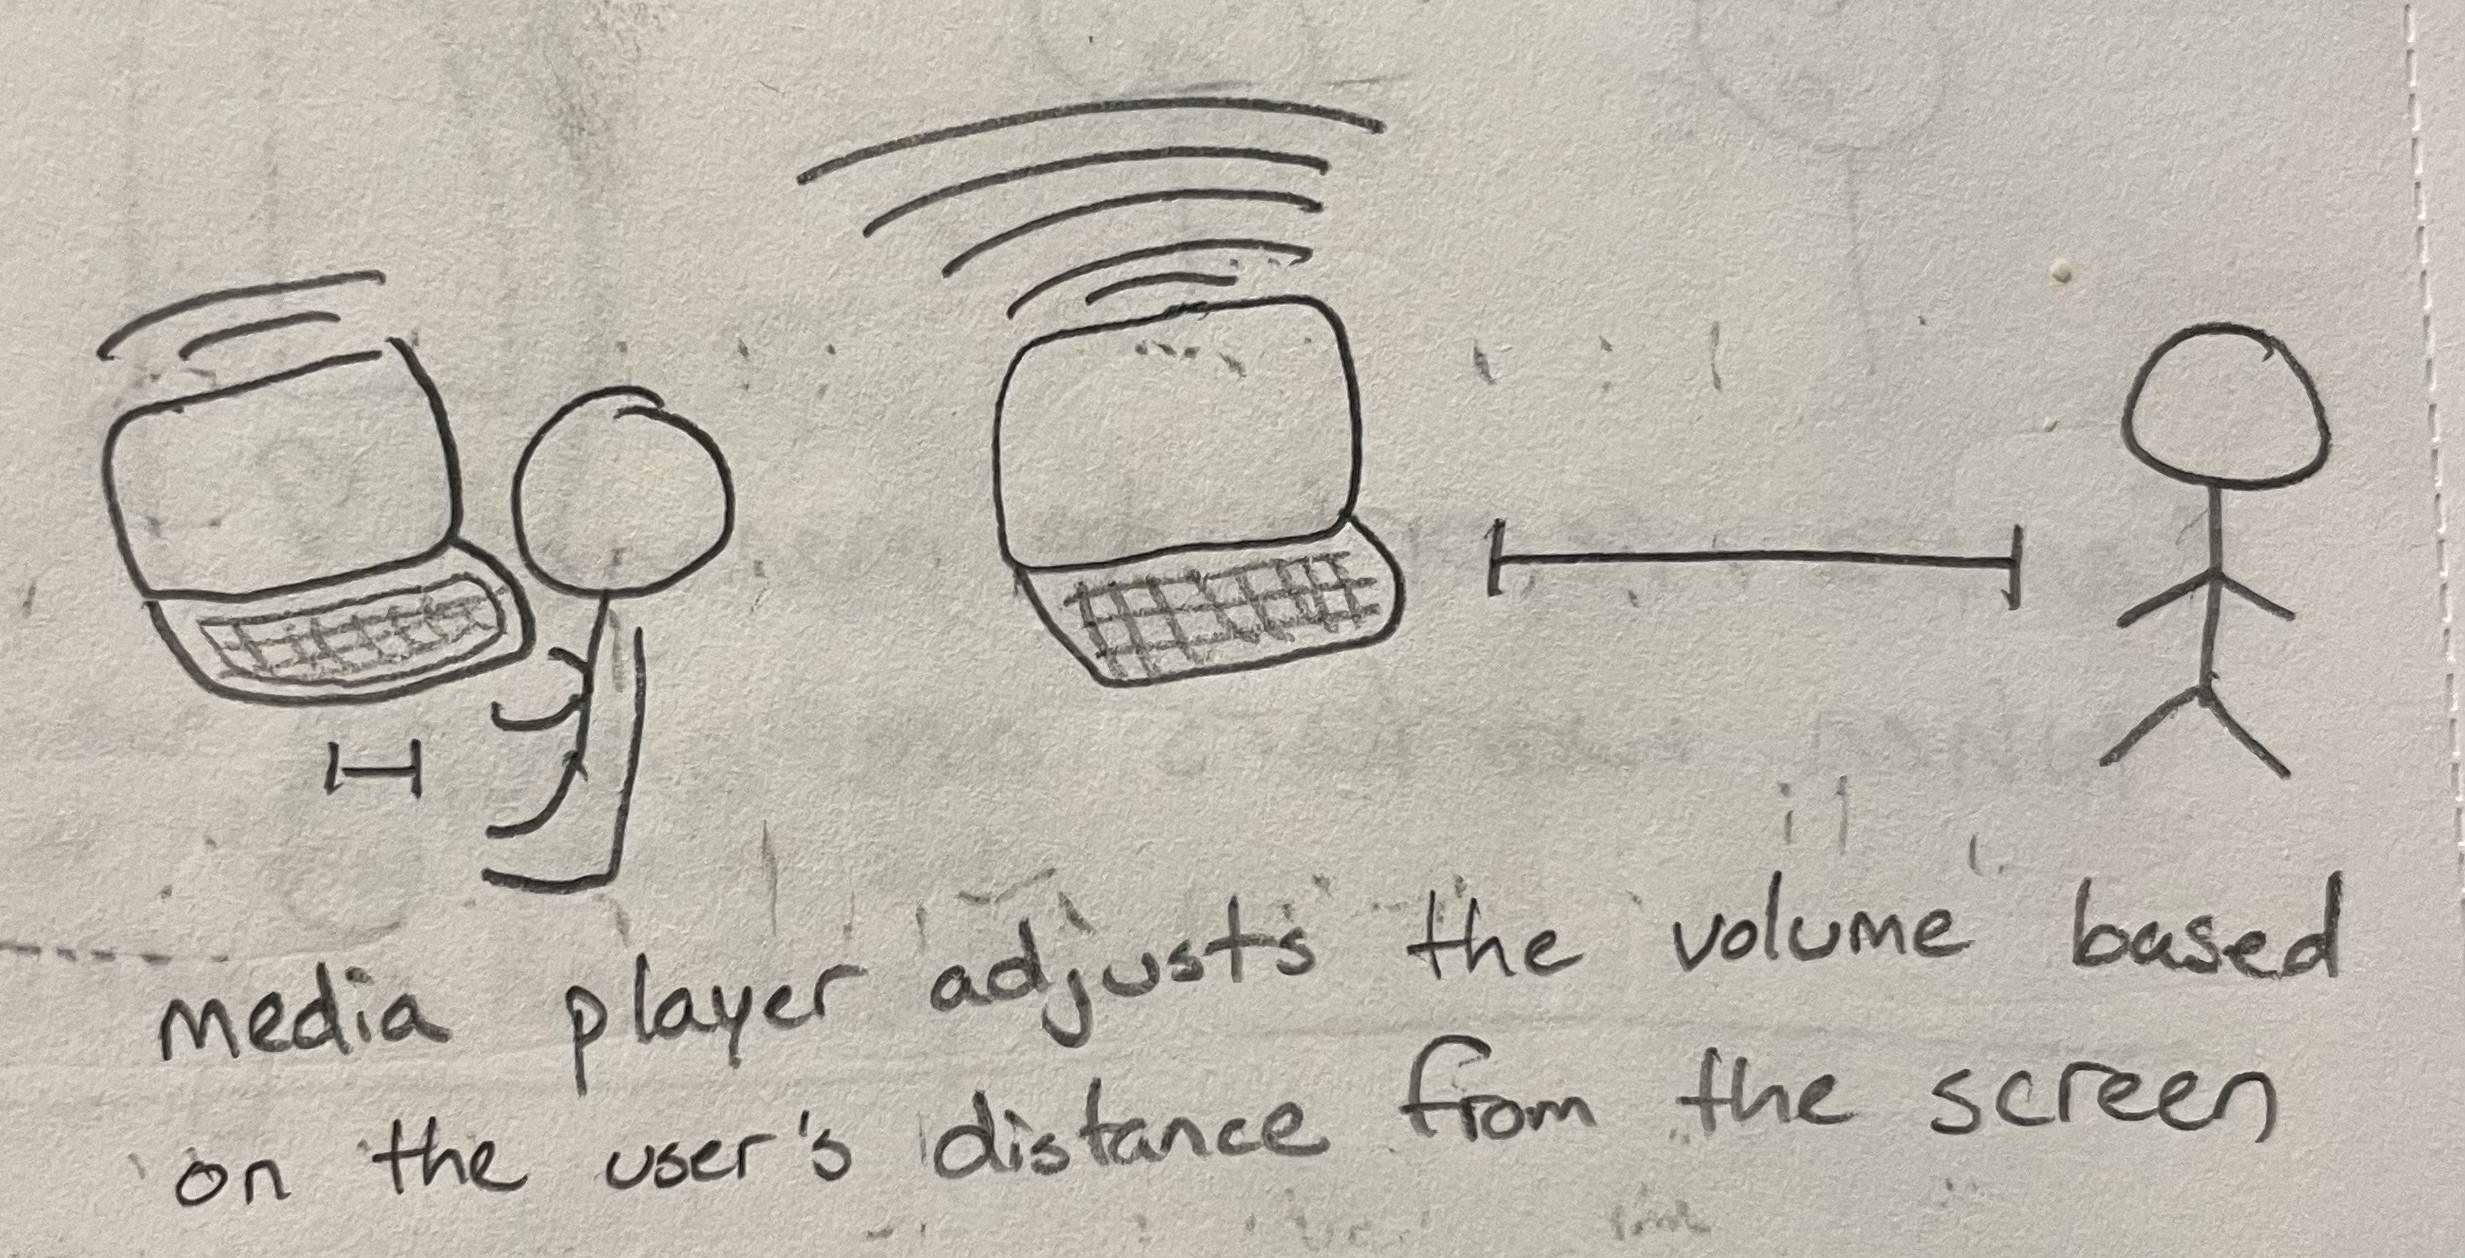 media player adjusts the volume based
on the user's distance from the screen